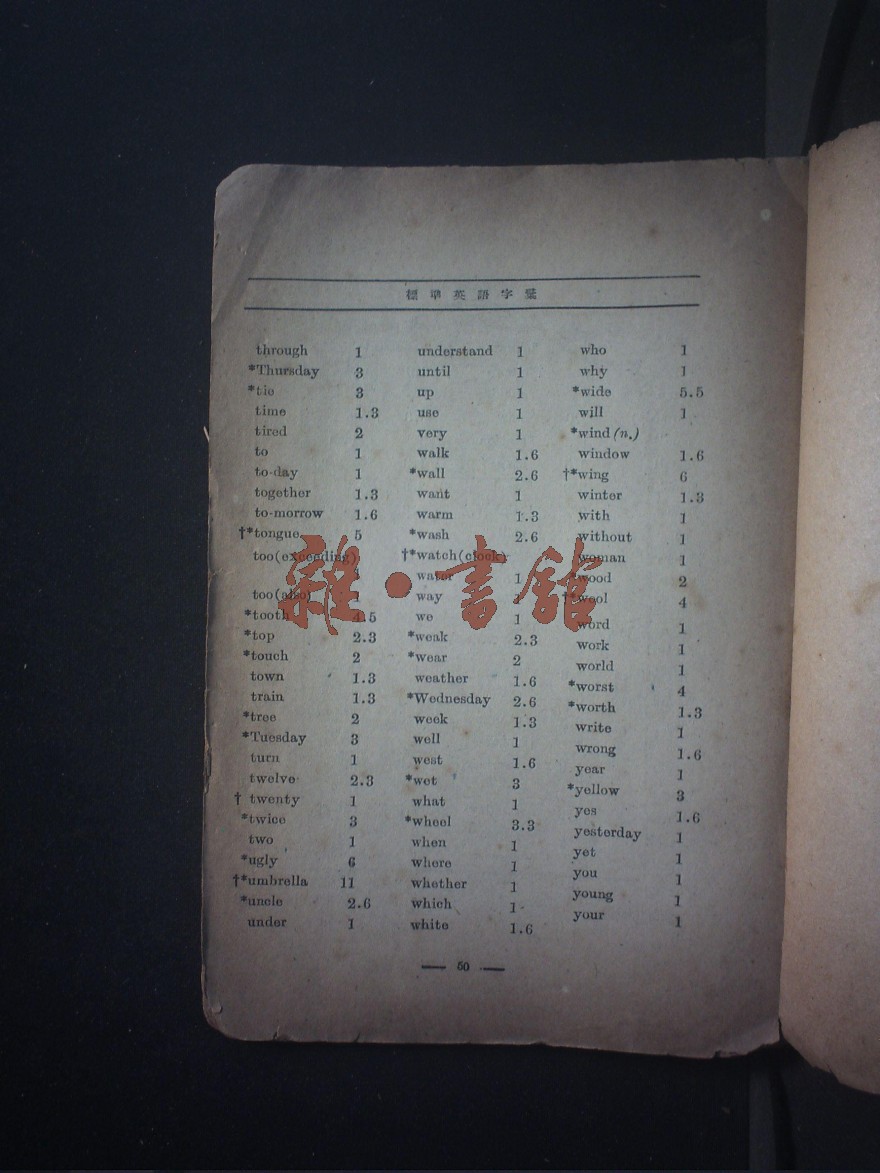 標準英語字彙
through 1
*Thursday 3
*tie 3
time 1.3
tired 2
to 1
to-day 1
together 1.3
to-morrow 1.6
†*tongue 5
too(exceeding)
too(also) 1
*tooth 4.5
*top 2.3
*touch 2
town 1.3
train 1.3
*tree 2
*Tuesday 3
turn 1
twelve 2.3
† twenty 1
*twice 3
two 1
*ugly 6
†*umbrella 11
*uncle 2.6
under 1
understand 1
until 1
up 1
use 1
very 1
walk 1.6
*wall 2.6
want 1
warm 1.3
*wash 2.6
†*watch(clock)
water 1
way 1
we 1
*weak 2.3
*wear 2
weather 1.6
*Wednesday 2.6
week 1.3
well 1
west 1.6
*wet 3
what 1
*wheel 3.3
when 1
where 1
whether 1
which 1
white 1.6
who 1
why 1
*wide 5.5
will 1
*wind (n.)
window 1.6
†*wing 6
winter 1.3
with 1
without 1
woman 1
wood 2
†*wool 4
word 1
work 1
world 1
*worst 4
*worth 1.3
write 1
wrong 1.6
year 1
*yellow 3
yes 1.6
yesterday 1
yet 1
you 1
young 1
your 1
— 50 —
雜·書館